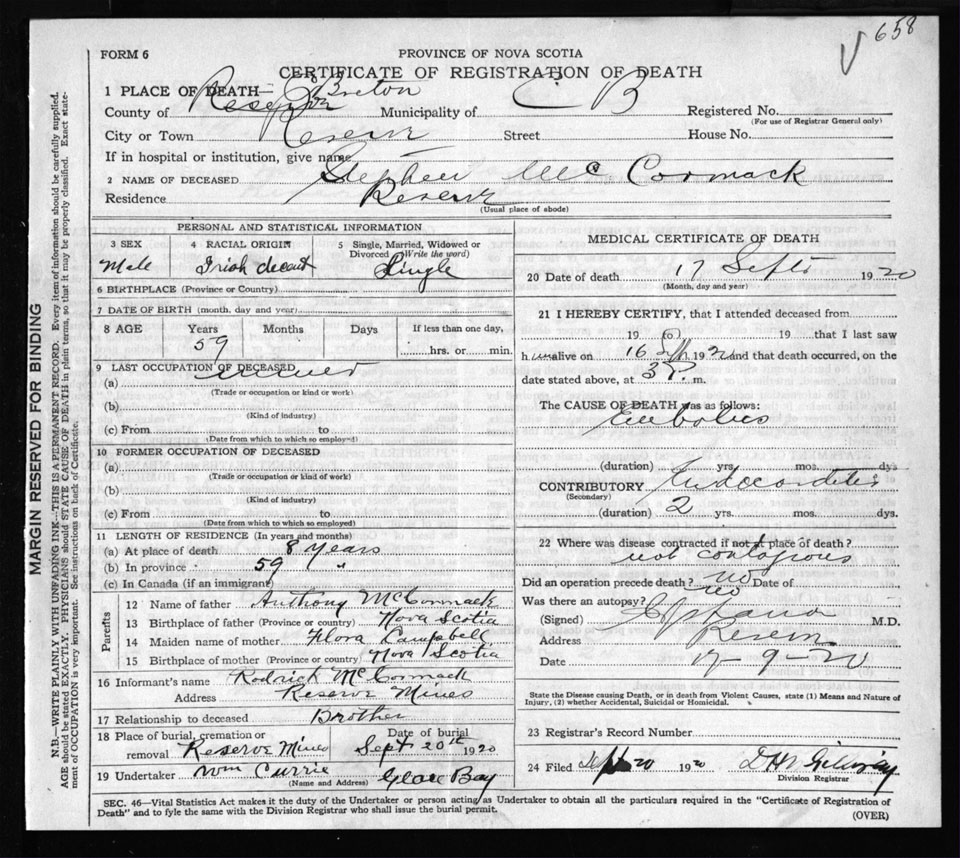 658
FORM 6
PROVINCE OF NOVA SCOTIA
CERTIFICATE OF REGISTRATION OF DEATH
1 PLACE OF DEATH— C Breton
County of Reserve Municipality of C B Registered No.
(For use of Registrar General only)
City or Town Reserve Street House No.
If in hospital or institution, give name
2 NAME OF DECEASED Stephen McCormack
Residence Reserve
(Usual place of abode)
PERSONAL AND STATISTICAL INFORMATION
3 SEX 4 RACIAL ORIGIN 5 Single, Married, Widowed or Divorced (Write the word)
Male Irish decent Single
6 BIRTHPLACE (Province or Country)
7 DATE OF BIRTH (month, day and year)
8 AGE Years Months Days If less than one day,
59 hrs. or min.
9 LAST OCCUPATION OF DECEASED
(a) miner
(Trade or occupation or kind or work)
(b)
(Kind of industry)
(c) From to
(Date from which to which so employed)
10 FORMER OCCUPATION OF DECEASED
(a)
(Trade or occupation or kind of work)
(b)
(Kind of industry)
(c) From to
(Date from which to which so employed)
11 LENGTH OF RESIDENCE (In years and months)
(a) At place of death 8 years
(b) In province 59 "
(c) In Canada (if an immigrant)
Parents
12 Name of father Anthony McCormack
13 Birthplace of father (Province or country) Nova Scotia
14 Maiden name of mother Flora Campbell
15 Birthplace of mother (Province or country) Nova Scotia
16 Informant's name Rodrick McCormack
Address Reserve Mines
17 Relationship to deceased Brother
18 Place of burial, cremation or removal Reserve Mines Date of burial Sept 20th 1920
19 Undertaker Wm Currie Glace Bay
(Name and Address)
MEDICAL CERTIFICATE OF DEATH
20 Date of death 17 Sept 1920
(Month, day and year)
21 I HEREBY CERTIFY, that I attended deceased from
19 to 19 that I last saw
h im alive on 16 Sept 1920 and that death occurred, on the
date stated above, at 3 P. m.
The CAUSE OF DEATH was as follows:
Embolus
(duration) yrs. mos. dys
CONTRIBUTORY Endocarditis
(Secondary)
(duration) 2 yrs. mos. dys.
22 Where was disease contracted if not at place of death?
not contagious
Did an operation precede death? no Date of
Was there an autopsy? no
(Signed) M.D.
Address Reserve
Date 17-9-20
State the Disease causing Death, or in death from Violent Causes, state (1) Means and Nature of
Injury, (2) whether Accidental, Suicidal or Homicidal.
23 Registrar's Record Number
24 Filed Sept 20 1920
Division Registrar
SEC. 46—Vital Statistics Act makes it the duty of the Undertaker or person acting as Undertaker to obtain all the particulars required in the "Certificate of Registration of
Death" and to fyle the same with the Division Registrar who shall issue the burial permit.
(OVER)
MARGIN RESERVED FOR BINDING
N.B.—WRITE PLAINLY WITH UNFADING INK—THIS IS A PERMANENT RECORD. Every item of information should be carefully supplied.
AGE should be stated EXACTLY. PHYSICIANS should STATE CAUSE OF DEATH in plain terms, so that it may be properly classified. Exact state-
ment of OCCUPATION is very important. See instructions on back of Certificate.